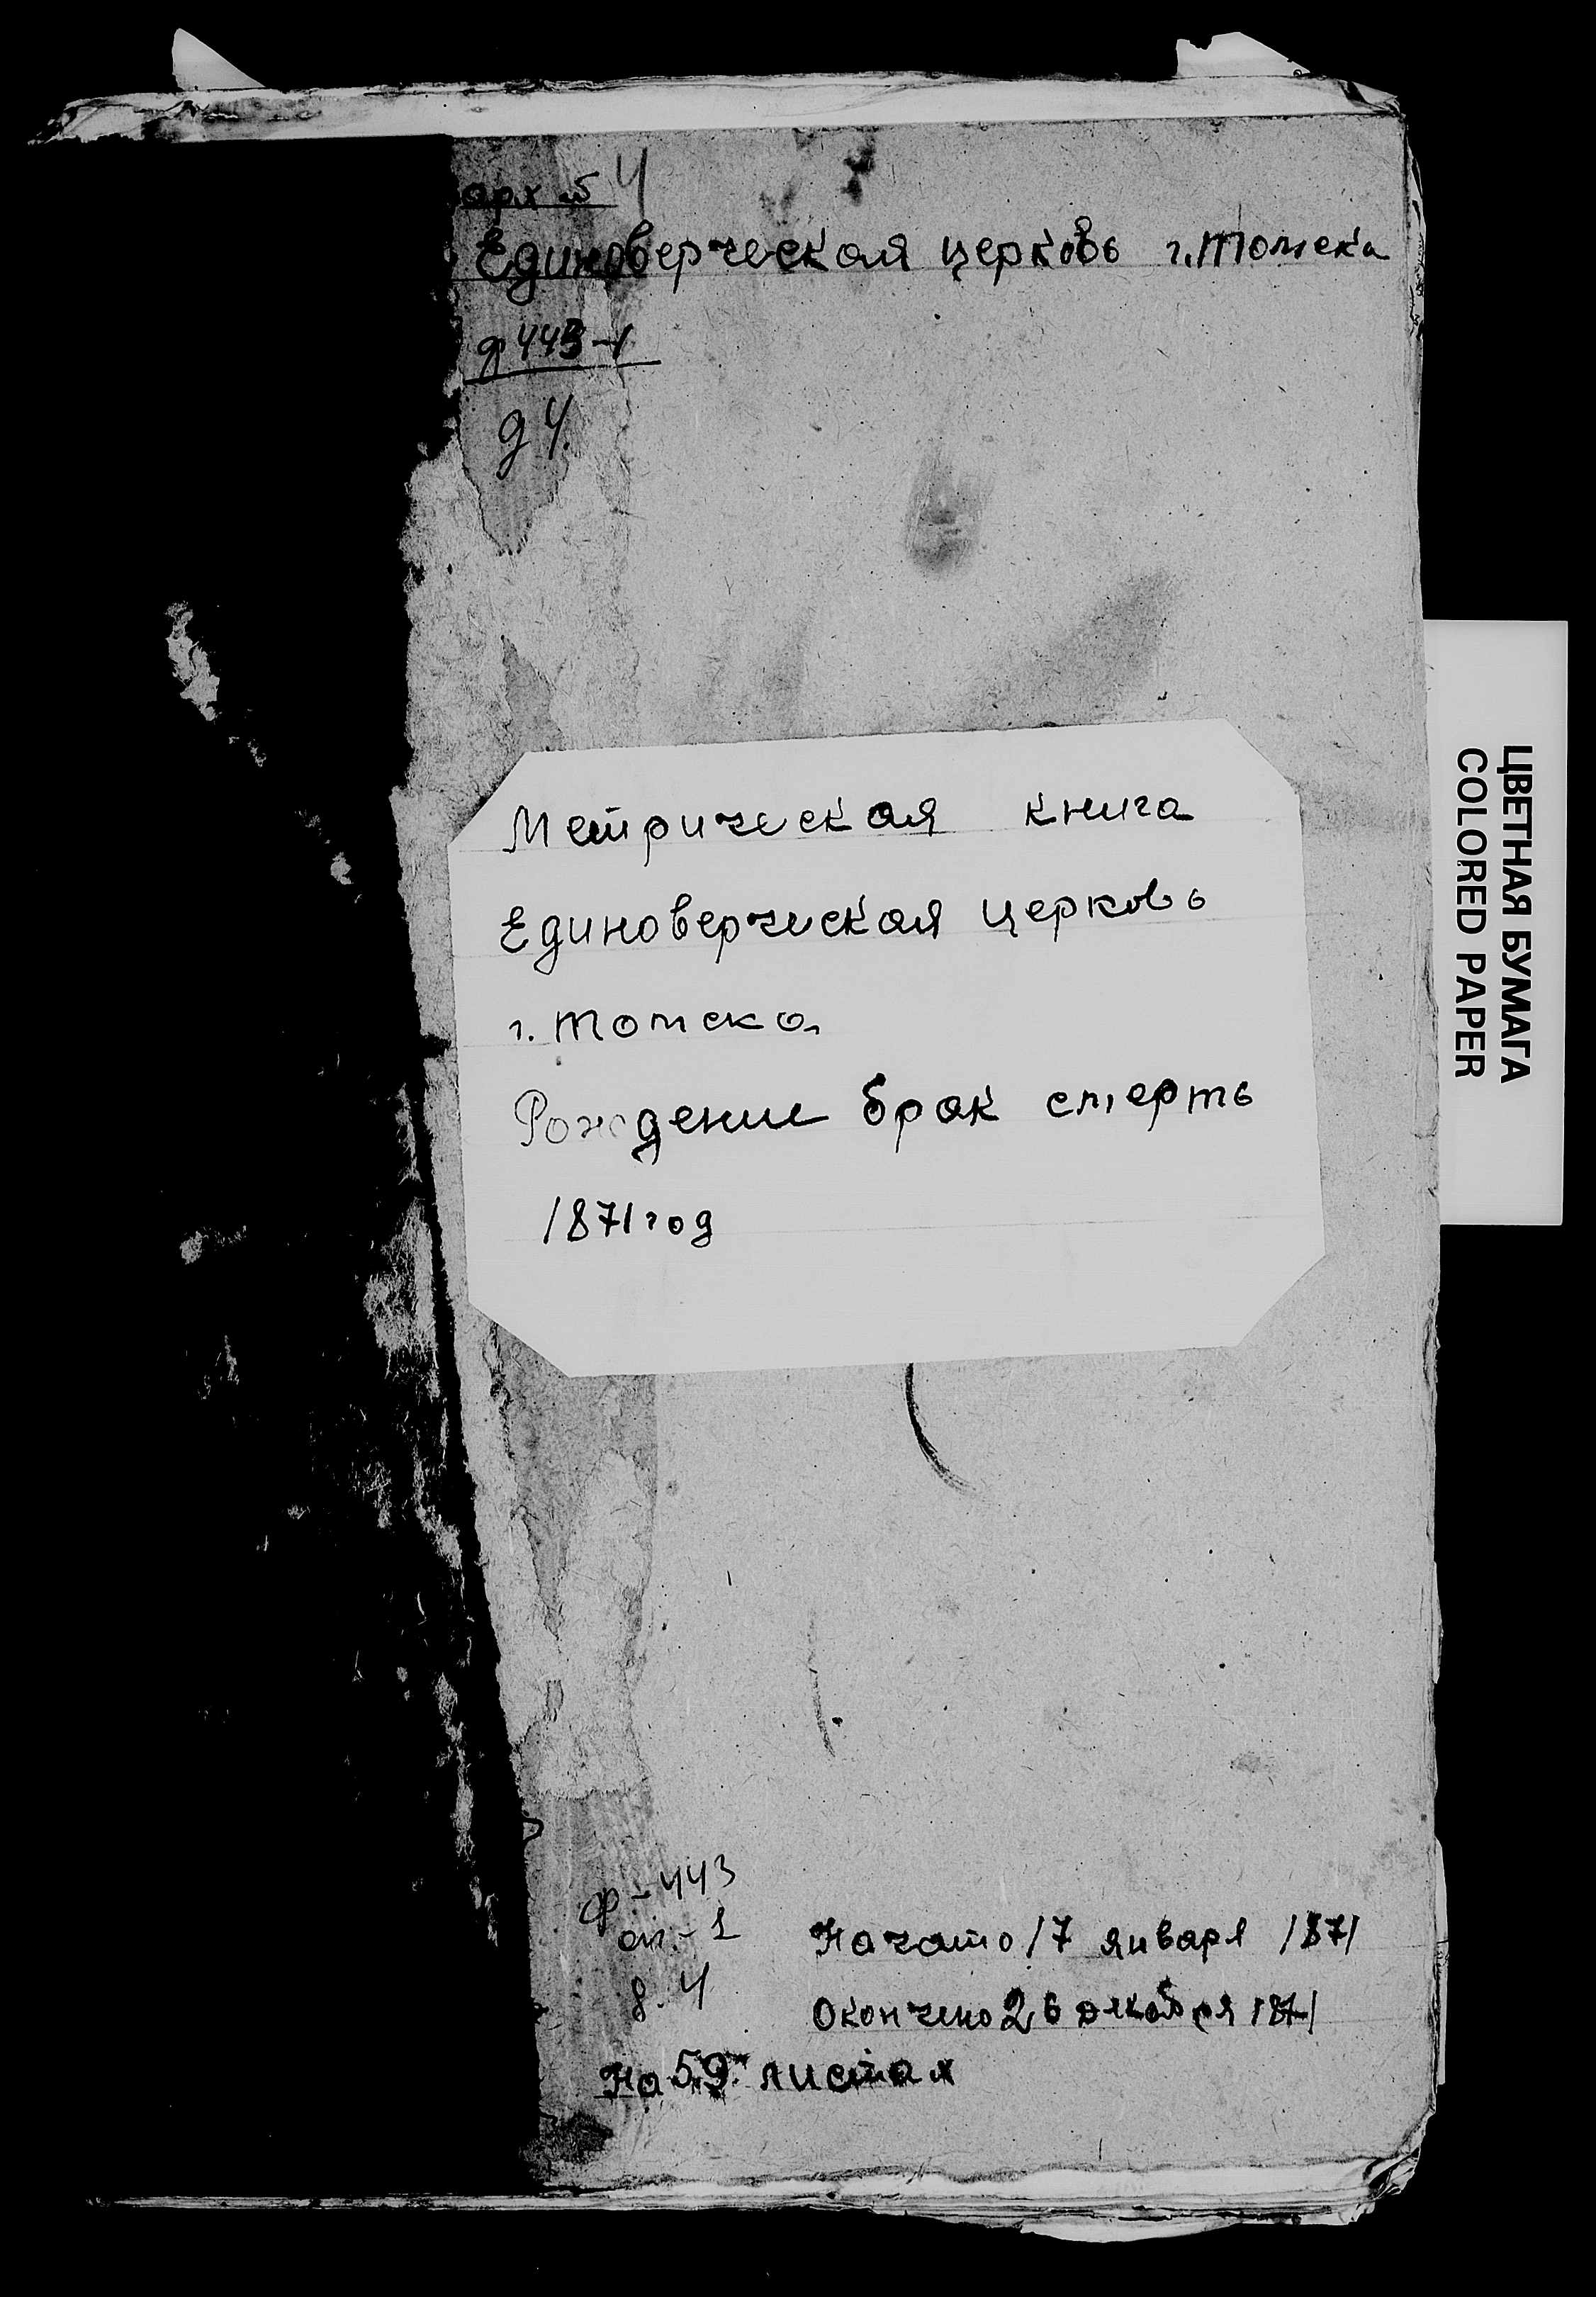 арх № 4
Единоверческая церковь г. Томска
ф 443-1
д 4.
Метрическая книга
Единоверческая церковь
г. Томска
Рождение брак смерть
1871 год
ЦВЕТНАЯ БУМАГА
COLORED PAPER
ф-443
оп.-1
д. 4
Начато 17 января 1871
Окончено 26 декабря 1871
На 59 листах